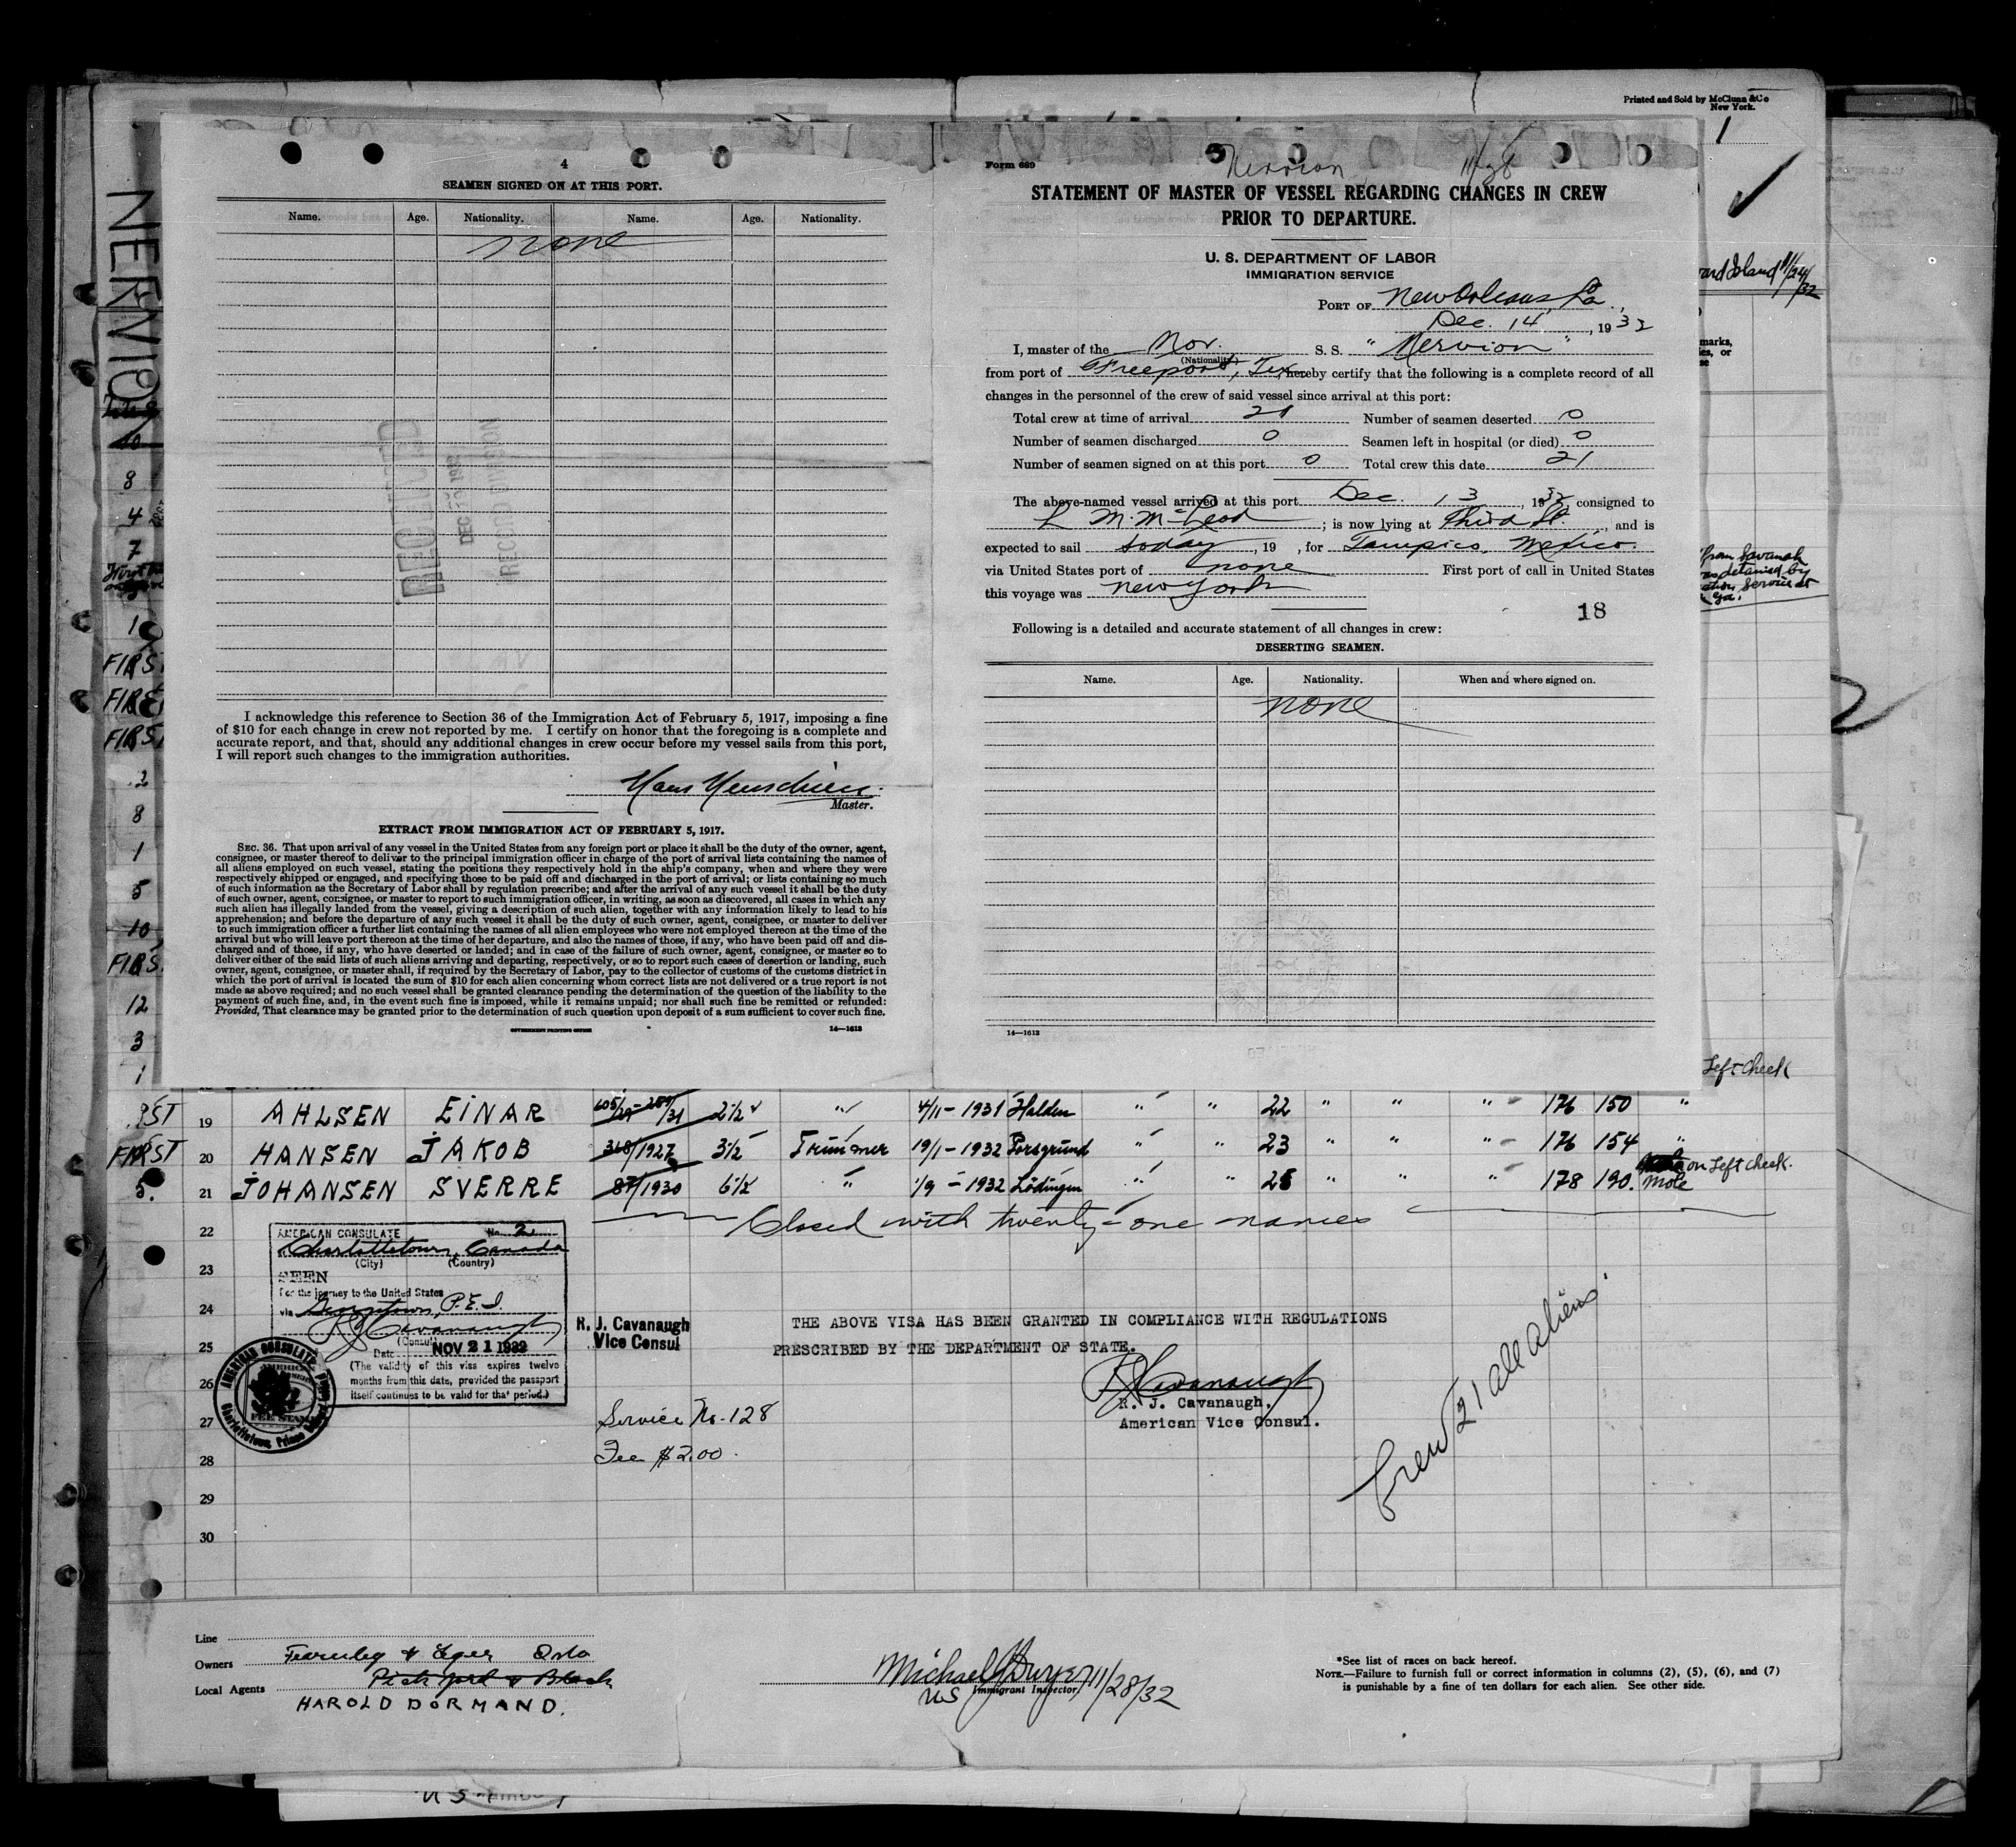 Printed and Sold by McClunn & Co
New York.
1
NERVION
4
SEAMEN SIGNED ON AT THIS PORT.
Name. Age. Nationality. Name. Age. Nationality.
none
RECEIVED
DEC
RECORD DIVISION
I acknowledge this reference to Section 36 of the Immigration Act of February 5, 1917, imposing a fine
of $10 for each change in crew not reported by me. I certify on honor that the foregoing is a complete and
accurate report, and that, should any additional changes in crew occur before my vessel sails from this port,
I will report such changes to the immigration authorities.
Master.
EXTRACT FROM IMMIGRATION ACT OF FEBRUARY 5, 1917.
SEC. 36. That upon arrival of any vessel in the United States from any foreign port or place it shall be the duty of the owner, agent,
consignee, or master thereof to deliver to the principal immigration officer in charge of the port of arrival lists containing the names of
all aliens employed on such vessel, stating the positions they respectively hold in the ship's company, when and where they were
respectively shipped or engaged, and specifying those to be paid off and discharged in the port of arrival; or lists containing so much
of such information as the Secretary of Labor shall by regulation prescribe; and after the arrival of any such vessel it shall be the duty
of such owner, agent, consignee, or master to report to such immigration officer, in writing, as soon as discovered, all cases in which any
such alien has illegally landed from the vessel, giving a description of such alien, together with any information likely to lead to his
apprehension; and before the departure of any such vessel it shall be the duty of such owner, agent, consignee, or master to deliver
to such immigration officer a further list containing the names of all alien employees who were not employed thereon at the time of the
arrival but who will leave port thereon at the time of her departure, and also the names of those, if any, who have been paid off and dis-
charged and of those, if any, who have deserted or landed; and in case of the failure of such owner, agent, consignee, or master so to
deliver either of the said lists of such aliens arriving and departing, respectively, or so to report such cases of desertion or landing, such
owner, agent, consignee, or master shall, if required by the Secretary of Labor, pay to the collector of customs of the customs district in
which the port of arrival is located the sum of $10 for each alien concerning whom correct lists are not delivered or a true report is not
made as above required; and no such vessel shall be granted clearance pending the determination of the question of the liability to the
payment of such fine, and, in the event such fine is imposed, while it remains unpaid; nor shall such fine be remitted or refunded:
Provided, That clearance may be granted prior to the determination of such question upon deposit of a sum sufficient to cover such fine.
GOVERNMENT PRINTING OFFICE 14—1612
Form 689
Nervion 11/28
STATEMENT OF MASTER OF VESSEL REGARDING CHANGES IN CREW
PRIOR TO DEPARTURE.
U. S. DEPARTMENT OF LABOR
IMMIGRATION SERVICE
PORT OF New Orleans La.,
Dec. 14, 1932
I, master of the Nor. S. S. "Nervion"
(Nationality)
from port of Freeport, Tex hereby certify that the following is a complete record of all
changes in the personnel of the crew of said vessel since arrival at this port:
Total crew at time of arrival 21 Number of seamen deserted 0
Number of seamen discharged 0 Seamen left in hospital (or died) 0
Number of seamen signed on at this port 0 Total crew this date 21
The above-named vessel arrived at this port Dec. 13, 1932 consigned to
L M. McLeod; is now lying at Third St., and is
expected to sail today, 19 , for Tampico, Mexico.
via United States port of none First port of call in United States
this voyage was New York
18
Following is a detailed and accurate statement of all changes in crew:
DESERTING SEAMEN.
Name. Age. Nationality. When and where signed on.
none
14—1612
ward Island 11/24/32
marks,
ies, or
se
from Savanah
detained by
Service at
Ga.
10
8
4
7
1
FIRS
FIRS
FIRS
2
8
1
5
10
FIRS.
12
3
1
Left Cheek
RST 19 AHLSEN EINAR 2 1/2 " 4/11-1931 Halden " " 22 " " " 176 150 "
FIRST 20 HANSEN JAKOB 368/1927 3 1/2 Trimmer 19/1-1932 Porsgrund " " 23 " " " 176 154 "
5. 21 JOHANSEN SVERRE 87/1930 6 1/2 " 1/9-1932 Lödingen " " 25 " " " 178 190. Mole on Left cheek.
22 Closed with twenty-one names
23
24
25
26
27
28
29
30
AMERICAN CONSULATE No. 2
Charlottetown, Canada
(City) (Country)
SEEN
For the journey to the United States
via Georgetown, P.E.I.
R J Cavanaugh
(Consul)
Date NOV 21 1932
(The validity of this visa expires twelve
months from this date, provided the passport
itself continues to be valid for that period.)
AMERICAN CONSULATE
FEE STAMP
R. J. Cavanaugh
Vice Consul
THE ABOVE VISA HAS BEEN GRANTED IN COMPLIANCE WITH REGULATIONS
PRESCRIBED BY THE DEPARTMENT OF STATE.
R J Cavanaugh
R. J. Cavanaugh,
American Vice Consul.
Service No. 128
Fee $2.00.
Crew 21 all aliens
Line
Owners Fearnley & Eger Oslo
Local Agents
HAROLD DORMAND.
Michael J Dwyer 11/28/32
US Immigrant Inspector
*See list of races on back hereof.
NOTE.—Failure to furnish full or correct information in columns (2), (5), (6), and (7)
is punishable by a fine of ten dollars for each alien. See other side.